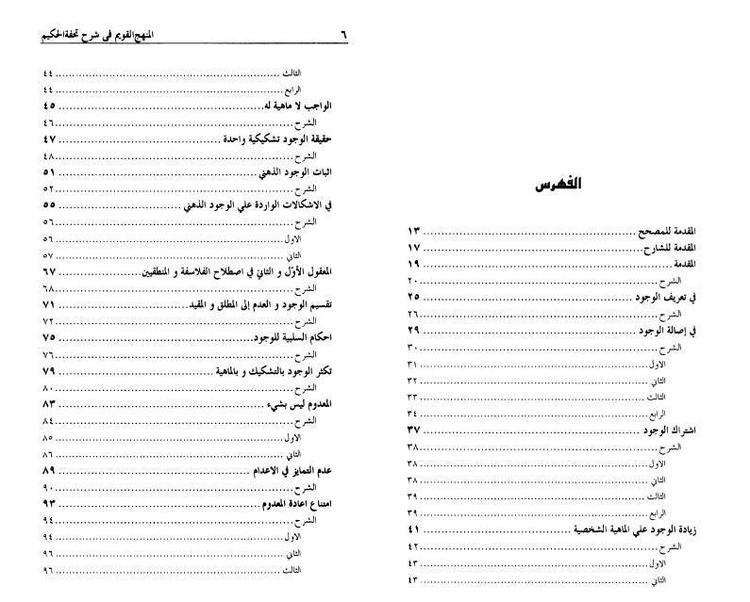 الفهرس
المقدمة للمصحح ١٣
المقدمة للشارح ١٧
المقدمة ١٩
الشرح ٢٠
في تعريف الوجود ٢٥
الشرح ٢٦
في إصالة الوجود ٢٩
الشرح ٣٠
الاول ٣١
الثاني ٣٢
الثالث ٣٣
الرابع ٣٤
اشتراك الوجود ٣٧
الشرح ٣٨
الاول ٣٨
الثاني ٣٨
الثالث ٣٩
الرابع ٣٩
زيادة الوجود علي الماهية الشخصية ٤١
الشرح ٤٢
الاول ٤٣
الثاني ٤٣
٦ المنهج القويم في شرح تحفة الحكيم
الثالث ٤٤
الرابع ٤٤
الواجب لا ماهية له ٤٥
الشرح ٤٦
حقيقة الوجود تشكيكية واحدة ٤٧
الشرح ٤٨
اثبات الوجود الذهني ٥١
الشرح ٥٢
في الاشكالات الواردة علي الوجود الذهني ٥٥
الشرح ٥٦
الاول ٥٦
الثاني ٥٧
المعقول الأوّل و الثاني في اصطلاح الفلاسفة و المنطقيين ٦٧
الشرح ٦٨
تقسيم الوجود و العدم إلى المطلق و المقيد ٧١
الشرح ٧٢
احكام السلبية للوجود ٧٥
الشرح ٧٦
تكثر الوجود بالتشكيك و بالماهية ٧٩
الشرح ٨٠
المعدوم ليس بشيء ٨٣
الشرح ٨٤
الاول ٨٥
الثاني ٨٦
عدم التمايز في الاعدام ٨٩
الشرح ٩٠
امتناع اعادة المعدوم ٩٣
الشرح ٩٤
الاول ٩٤
الثاني ٩٦
الثالث ٩٦